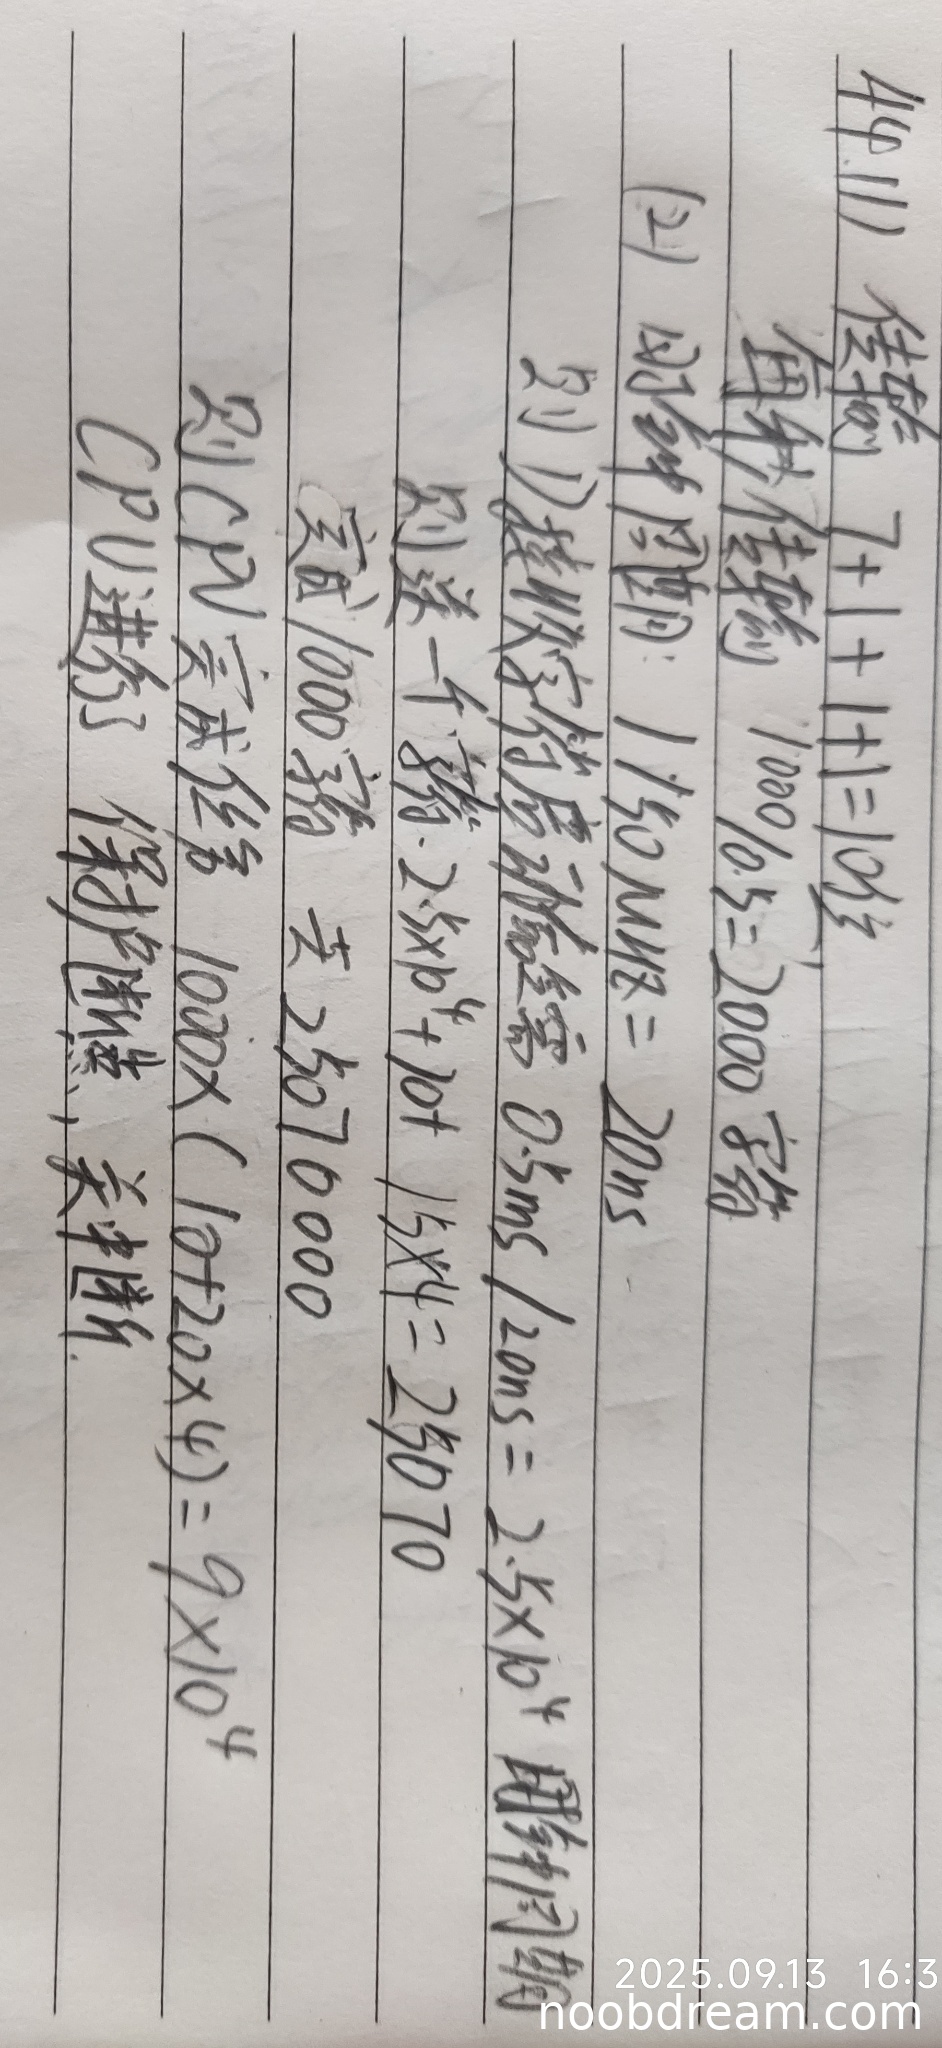 44.(1) 传输 7+1+1+1=10位
每秒传输 1000/0.5=2000字符
(2) 时钟周期: 1/50MHz= 20ns
则 1)接收字符后设备输 0.5ms/20ns= 2.5×10⁴ 时钟周期
则送一个字符.2.5×10⁴+10+ 15×4= 25070
完成1000字符 共 25070000
则CPU完成任务 1000×(10+20×4)=9×10⁴
CPU进行 保护断点、关中断.
2025.09.13 16:3
noobdream.com